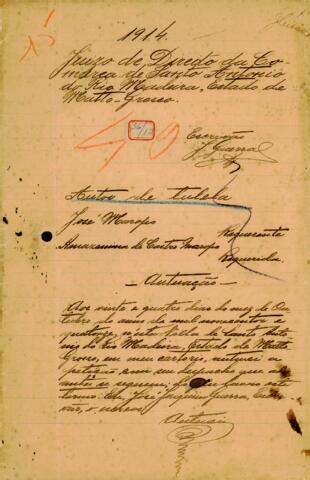 1914.
Juizo de Direito da Co-
marca de Santo Antonio
do Rio Madeira, Estado de
Matto-Grosso.
Escrivão
J. Guerra
Autos de tutela
José Marops
Requerente
Amazonina de Castro Marops
Requerida.
Autuação
Aos vinte e quatro dias do mez de Ou-
tubro do anno de mil novecentos e
quatorze, n'esta Villa de Santo Anto-
nio do Rio Madeira, Estado de Matto
Grosso, em meu cartorio, autuei a
petição com um despacho que a
se seguem; do que faço este
termo. Eu, José Joaquim Guerra, Escri-
vão, o escrevi